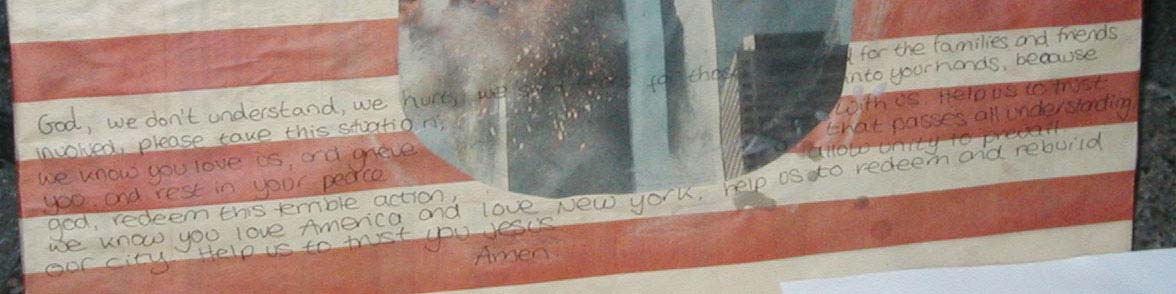 God, we don't understand, we hurt, we for those for the families and friends
involved, please take this situation, into your hands, because
we know you love us, and grieve with us. Help us to trust
you and rest in your peace that passes all understanding
god, redeem this terrible action, allow unity to prevail
we know you love America and love New York. help us to redeem and rebuild
our city. Help us to trust you Jesus
Amen.